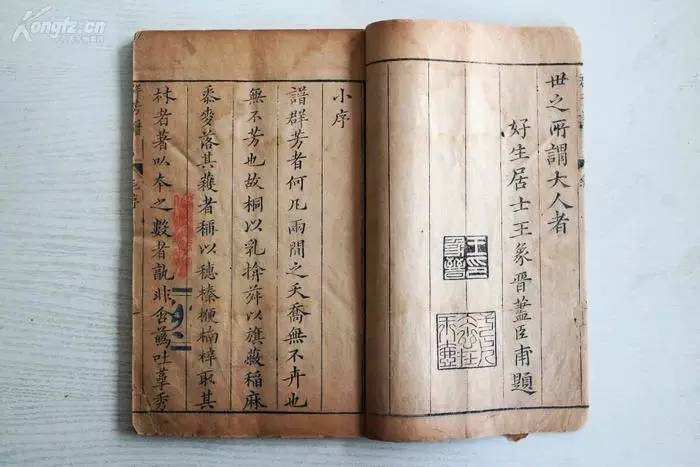 世之所謂大人者
好生居士王象晉藎臣甫題
小序
譜群芳者何凡兩間之夭喬無不卉也
無不芳也故桐以乳榆莢以旗蔽稻麻
黍麥落其穫者稱以穗榛楩楠梓取其
林者著以本之數者孰非含蘤吐萼秀
Kongfz.cn